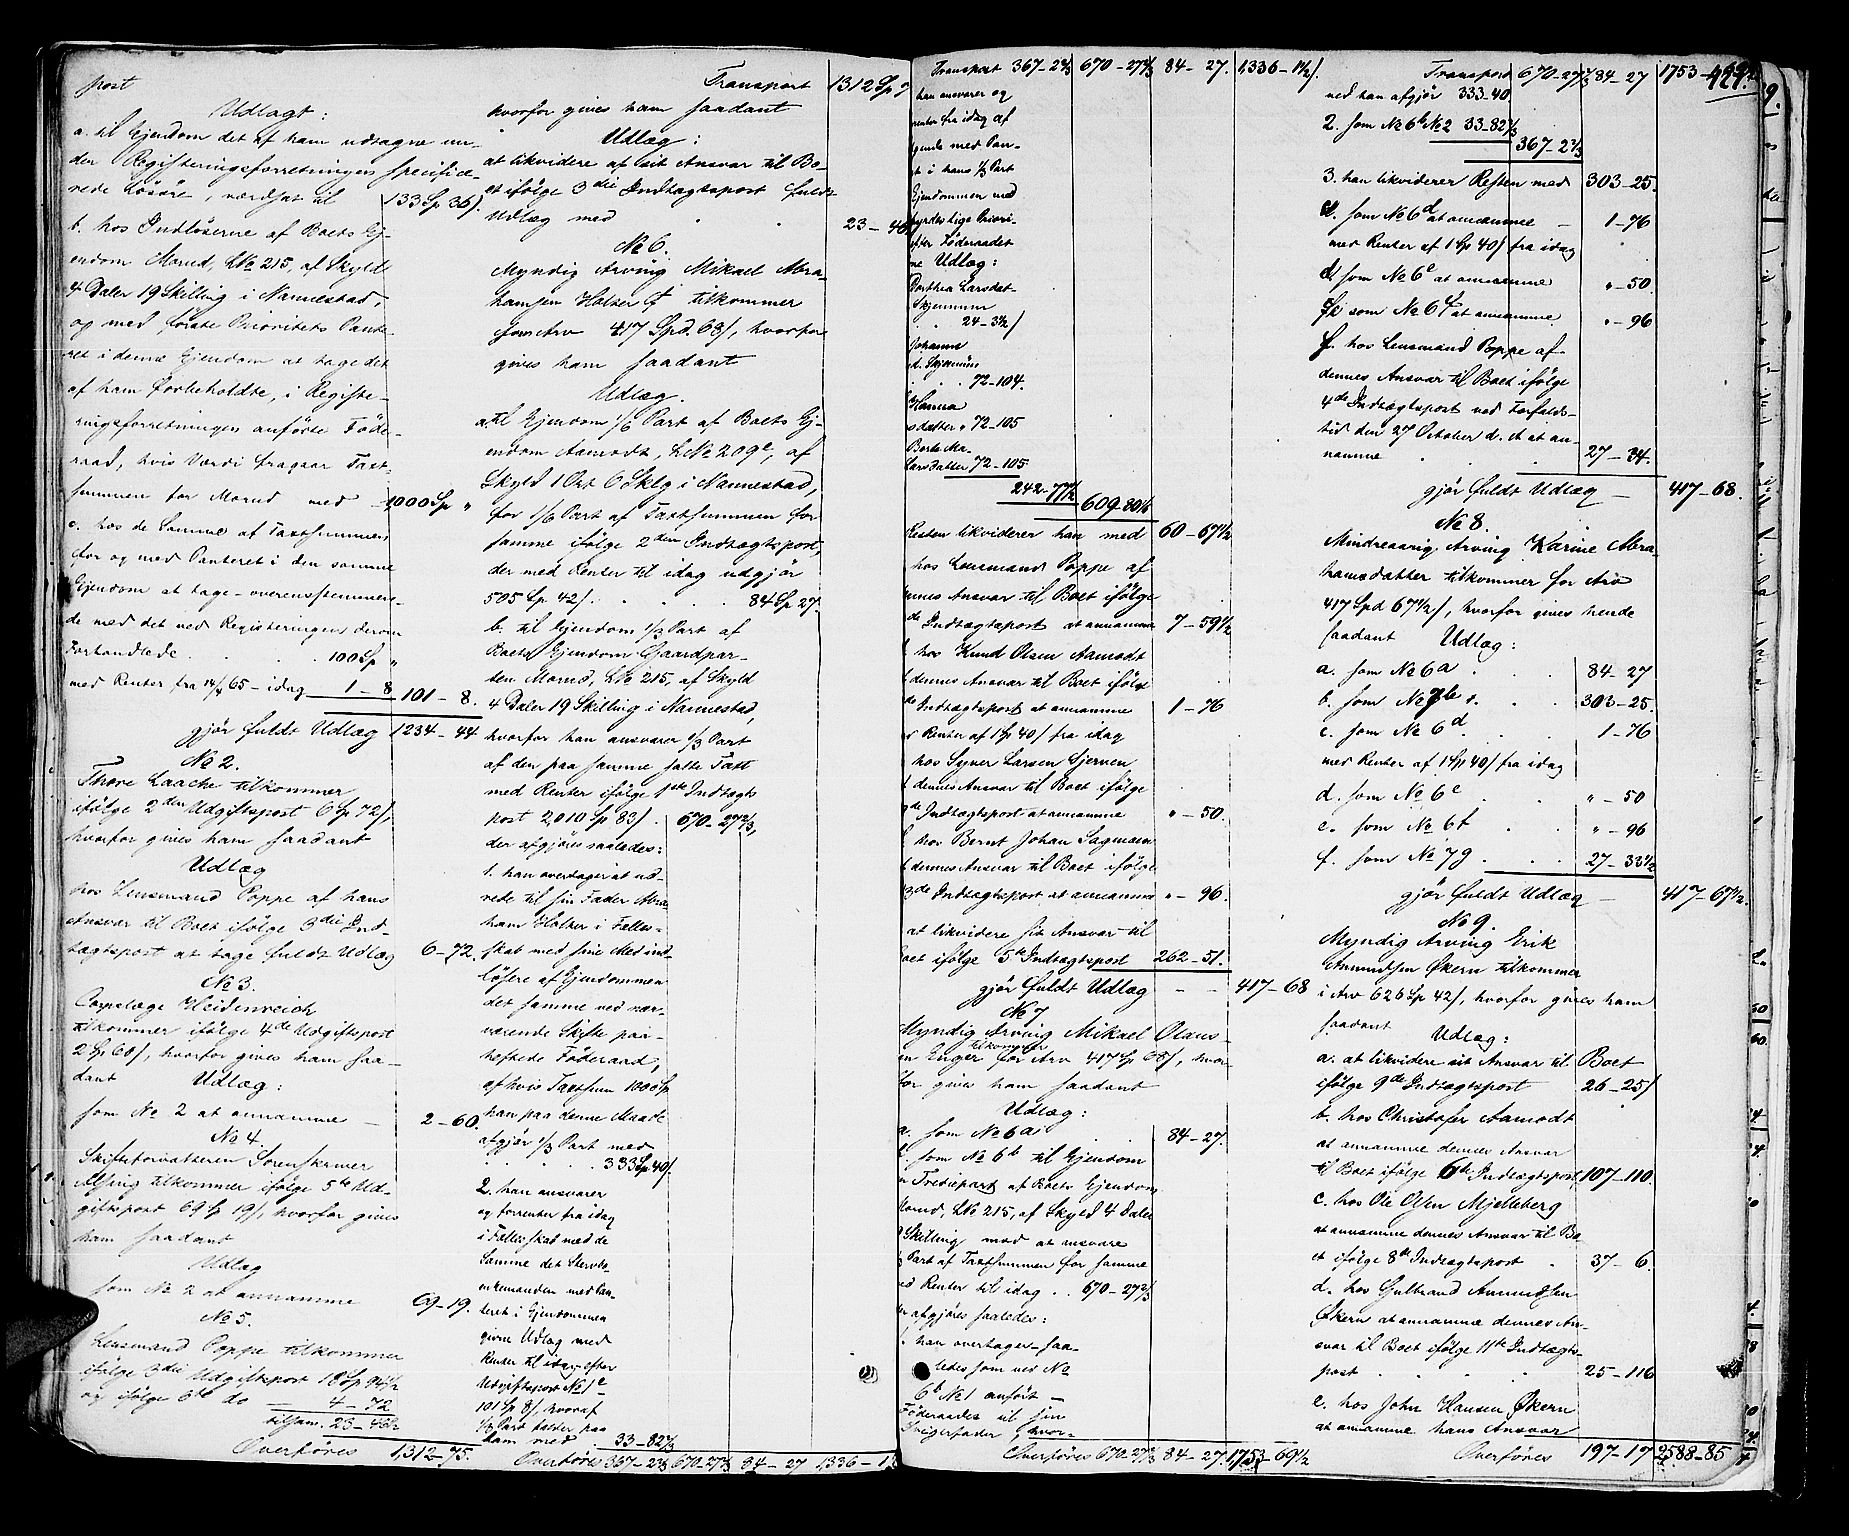 post
Udlagt:
a. til Ejendom det af ham udtagne un-
der Registeringsforretningen specifice-
rede Løsøre, værdsat til 133 Sp 36/.
b. hos Indløserne af Boets Ej-
endom Morud, L№ 215, af Skyld
4 Daler 19 Skilling i Nannestad,
og med første Prioritets Pante-
ret i denne Ejendom at tage det
af ham forbeholdte, i Registe-
ringsforretningen anførte Føde-
raad, hvis Værdi fragaar Taxt-
summen for Morud med 1000 Sp "
c. hos de Samme af Taxtsummen
for og med Panteret i den samme
Ejendom at tage - overensstemmen-
de med det ved Registeringen derom
Forhandlede . . . 100 Sp "
med Renter fra 14/4 65 - idag 1 - 8 101 - 8.
gjør fuldt Udlæg 1234 - 44
№ 2.
Thore Laache tilkommer
ifølge 2den Udgiftspost 6 Sp 72/,
hvorfor gives ham saadant
Udlæg
hos Lensmand Poppe af hans
Ansvar til Boet ifølge 3die Ind-
tægtspost at tage fuldt Udlæg 6 - 72.
№ 3.
Corpslæge Heidenreich
tilkommer ifølge 4de Udgiftspost
2 Sp 60/, hvorfor gives ham saa-
dant Udlæg:
som № 2 at annamme - 2 - 60.
№ 4.
Skifteforvalteren Sorenskriver
tilkommer ifølge 5te Ud-
giftspost 69 Sp 19/, hvorfor gives
ham saadant
Udlæg
som № 2 at annamme 69 - 19.
№ 5.
Lensmand Poppe tilkommer
ifølge 3die Udgiftspost 18 Sp 94 1/2
og ifølge 6te do - 4 - 72
tilsam. 23 - 46 1/2
Overføres 1312 - 75.
Transport 1312 Sp 7
hvorfor gives ham saadant
Udlæg:
at likvidere af sit Ansvar til Bo-
et ifølge 3die Indtægtspost fuldt
Udlæg med . . 23 - 46
№ 6.
Myndig Arving Mikael Abra-
hamsen Holter tilkommer
som Arv 417 Spd. 68/, hvorfor
gives ham saadant
Udlæg.
a. til Ejendom 1/6 Part af Boets Ej-
endom Aamodt, L№ 209c, af
Skyld 1 Ort 6 Sklg i Nannestad,
for 1/6 Part af Taxtsummen for
samme ifølge 2den Indtægtspost,
der med Renter til idag udgjør
505 Sp 42/. . . . 84 Sp 27.
b. til Ejendom 1/3 Part af
Boets Ejendom Gaardpar-
ten Morud, L№ 215, af Skyld
4 Daler 19 Skilling i Nannestad,
hvorfor han ansvarer 1/3 Part
af den paa samme satte Taxt
med Renter ifølge 1ste Indtægts
post 2,010 Sp 83/. 670 - 27 2/3,
der afgjøres saaledes:
1. han overtager at ud-
rede til sin Fader Abra-
ham Holter i Felles-
skab med sine Med ind-
løsere af Ejendommen
det samme ved nær-
værende Skifte paa-
heftede Føderaad,
af hvis Taxtsum 1000 Sp
han paa denne Maade
afgjør 1/3 Part med
. . . . 333 Sp 40/.
2. han ansvarer
og forrenter fra idag
i Fellesskab med de
Samme det Stervbo-
enkemanden med Pan-
teret i Ejendommen
givne Udlæg med
Renter til idag efter
Udgiftspost № 1c
101 Sp 8/, hvoraf
1/3 Part falder paa
ham med . 33 - 82 2/3
Overføres 367 - 2 2/3 670 - 27 2/3 84 - 27 1,336 - 1
Transport 367 - 2 2/3 670 - 27 2/3 84 - 27. 1,336 - 1 1/2/.
han ansvarer og
renter fra idag af
gende med Pan-
t i hans 1/3 Part
Ejendommen med
byrdes lige Priori-
efter Føderaadet
ne Udlæg:
Dorthea Larsdat-
Skjennum
. . 24 - 3 1/2/
Johanne
d. Skjennum
. . . 72 - 104.
Hanna
sdatter " 72 - 105
Berte Ma-
Larsdatter 72 - 105.
242 - 77 1/2
609 - 80 1/6
Resten likviderer han med 60 - 67 1/2
hos Lensmand Poppe af
ennes Ansvar til Boet ifølge
de Indtægtspost at annamme 7 - 59 1/2
hos Knud Olsen Aamodt
dennes Ansvar til Boet ifølge
de Indtægtspost at annamme 1 - 76
Renter af 1 Sp 40/ fra idag
hos Syver Larsen Gjerven
dennes Ansvar til Boet ifølge
de Indtægtspost at annamme " - 50.
hos Bernt Johan Sagmoen
dennes Ansvar til Boet ifølge
3de Indtægtspost at annamme " - 96.
at likvidere sit Ansvar til
Boet ifølge 5te Indtægtspost 262 - 51.
gjør fuldt Udlæg - - 417 - 68
№ 7
Myndig Arving Mikael Olaus-
en Enger tilkommer for Arv 417 Sp 68/, hvor-
for gives ham saadant
Udlæg:
a. som № 6 a . . 84 - 27.
som № 6b til Ejendom
Trediepart af Boets Ejendom
Morud, L№ 215, af Skyld 4 Daler
Skilling mod at ansvare
Part af Taxtsummen for samme
Renter til idag . . 670 - 27 2/3
afgjøres saaledes:
1. han overtager saa-
ledes som ved №
6b № 1 anført -
Føderaadet til sin
Svigerfader, hvor-
Overføres 670 - 27 2/3 84 - 27. 1753 - 69 1/2
Transport 670 - 27 2/3 84 - 27 1753 - 69 1/2
ved han afgjør 333 - 40
2. som № 6b № 2 33 - 82 2/3
367 - 2 2/3
3. han likviderer Resten med 303 - 25.
som № 6d at annamme - 1 - 76
med Renter af 1 Sp 40/ fra idag
som № 6e at annamme " - 50.
som № 6f at annamme " - 96
hos Lensmand Poppe af
dennes Ansvar til Boet ifølge
4de Indtægtspost ved Forfalds-
tid den 27 October d. A at an-
namme . . 27 - 34.
gjør fuldt Udlæg - 417 - 68.
№ 8.
Mindreaarig Arving Karine Abra-
hamsdatter tilkommer for Arv
417 Spd 67 1/2/, hvorfor gives hende
saadant Udlæg:
a. som № 6 a . . 84 - 27
b. som № 7 b . . 303 - 25.
c. som № 6 d . . 1 - 76
med Renter af 1 Sp 40/ fra idag
d. som № 6 e . . " - 50
e. som № 6 f . . " - 96
f. som № 7 g . . 27 - 33 1/2
gjør fuldt Udlæg - 417 - 67 1/2.
№ 9.
Myndig Arving Erik
Amundsen Økern tilkommer
i Arv 626 Sp 42/, hvorfor gives ham
saadant Udlæg:
a. at likvidere sit Ansvar til Boet
ifølge 9de Indtægtspost 26 - 25/
b. hos Christofer Aamodt
at annamme dennes Ansvar
til Boet ifølge 6te Indtægtspost 107 - 110.
c. hos Ole Olsen Mjelleberg
at annamme dennes Ansvar til Bo-
et ifølge 8de Indtægtspost . 37 - 6.
d. hos Gulbrand Amundsen
Økern at annamme dennes An-
svar til Boet ifølge 11te Indtægts-
post . . . . 25 - 116
e. hos John Hansen Økern
at annamme hans Ansvar
Overføres 197 - 17 2588 - 85